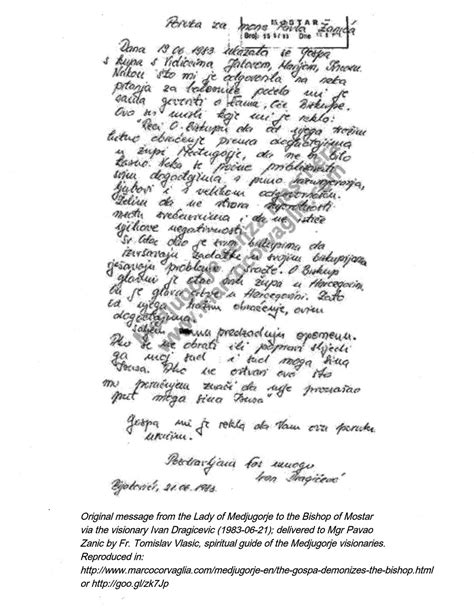 Poruka za mons Pavla Žanića
MOSTAR
Dana 19.06.1983 ukazala se Gospa
s kupa s Vidiocima Jakovom, Marijom,
Nakon što mi je odgovorila na neka
pitanja za bolesnike počela mi je
sama govoriti o Vama, Oče Biskupe.
Ovo su misli koje mi je rekla:
"Reci O. Biskupu da od njega tražim
hitno obraćenje prema događajima
u župi Međugorje, da ne bi bilo
kasno. Neka se počne približavati
tim događajima s puno razumijevanja,
ljubavi i s velikom odgovornošću.
Želim da ne stvara
među svećenicima i da ne ističe
njihove negativnosti.
Sv. Otac dao je svim biskupima da
izvršavaju zadatke u svojim biskupijama
rješavaju probleme i svađe. O. Biskup
glavni je otac svih župa u Hercegovini
on je glava crkve u Hercegovini. Zato
od njega tražim obraćenje, ovim
događajima.
Šaljem mu predzadnju opomenu.
Ako se ne obrati ili popravi slijedi
ga moj sud i sud moga sina
Isusa. Ako ne ostvari ovo što
mu poručujem znači da nije pronašao
put moga sina Isusa"
Gospa mi je rekla da Vam ovu poruku
uručim.
Pozdravljam Vas mnogo
Ivan Dragičević
Bijakovići, 21.06.1983.
Medjugorje senza maschera
www.marcocorvaglia.com
Original message from the Lady of Medjugorje to the Bishop of Mostar
via the visionary Ivan Dragicevic (1983-06-21); delivered to Mgr Pavao
Zanic by Fr. Tomislav Vlasic, spiritual guide of the Medjugorje visionaries.
Reproduced in:
http://www.marcocorvaglia.com/medjugorje-en/the-gospa-demonizes-the-bishop.html
or http://goo.gl/zk7Jp